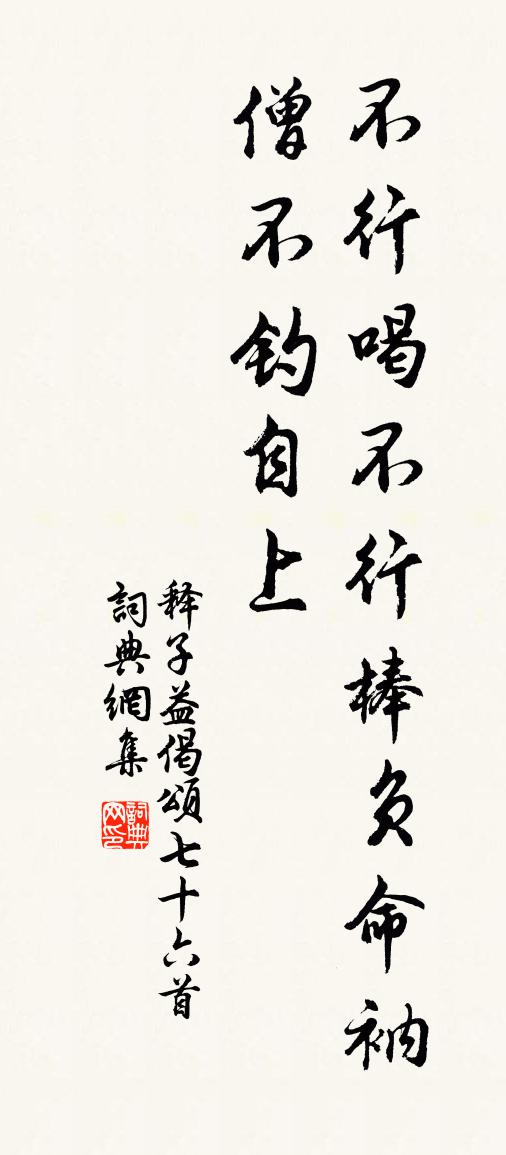 不行喝不行棒負命衲
僧不釣自上
释子益偈頌七十六首
詞典網集
詞典
网印